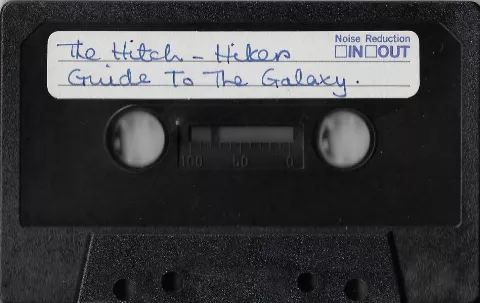 Noise Reduction
☐IN☐OUT
The Hitch-Hikers
Guide To The Galaxy.
100 50 0